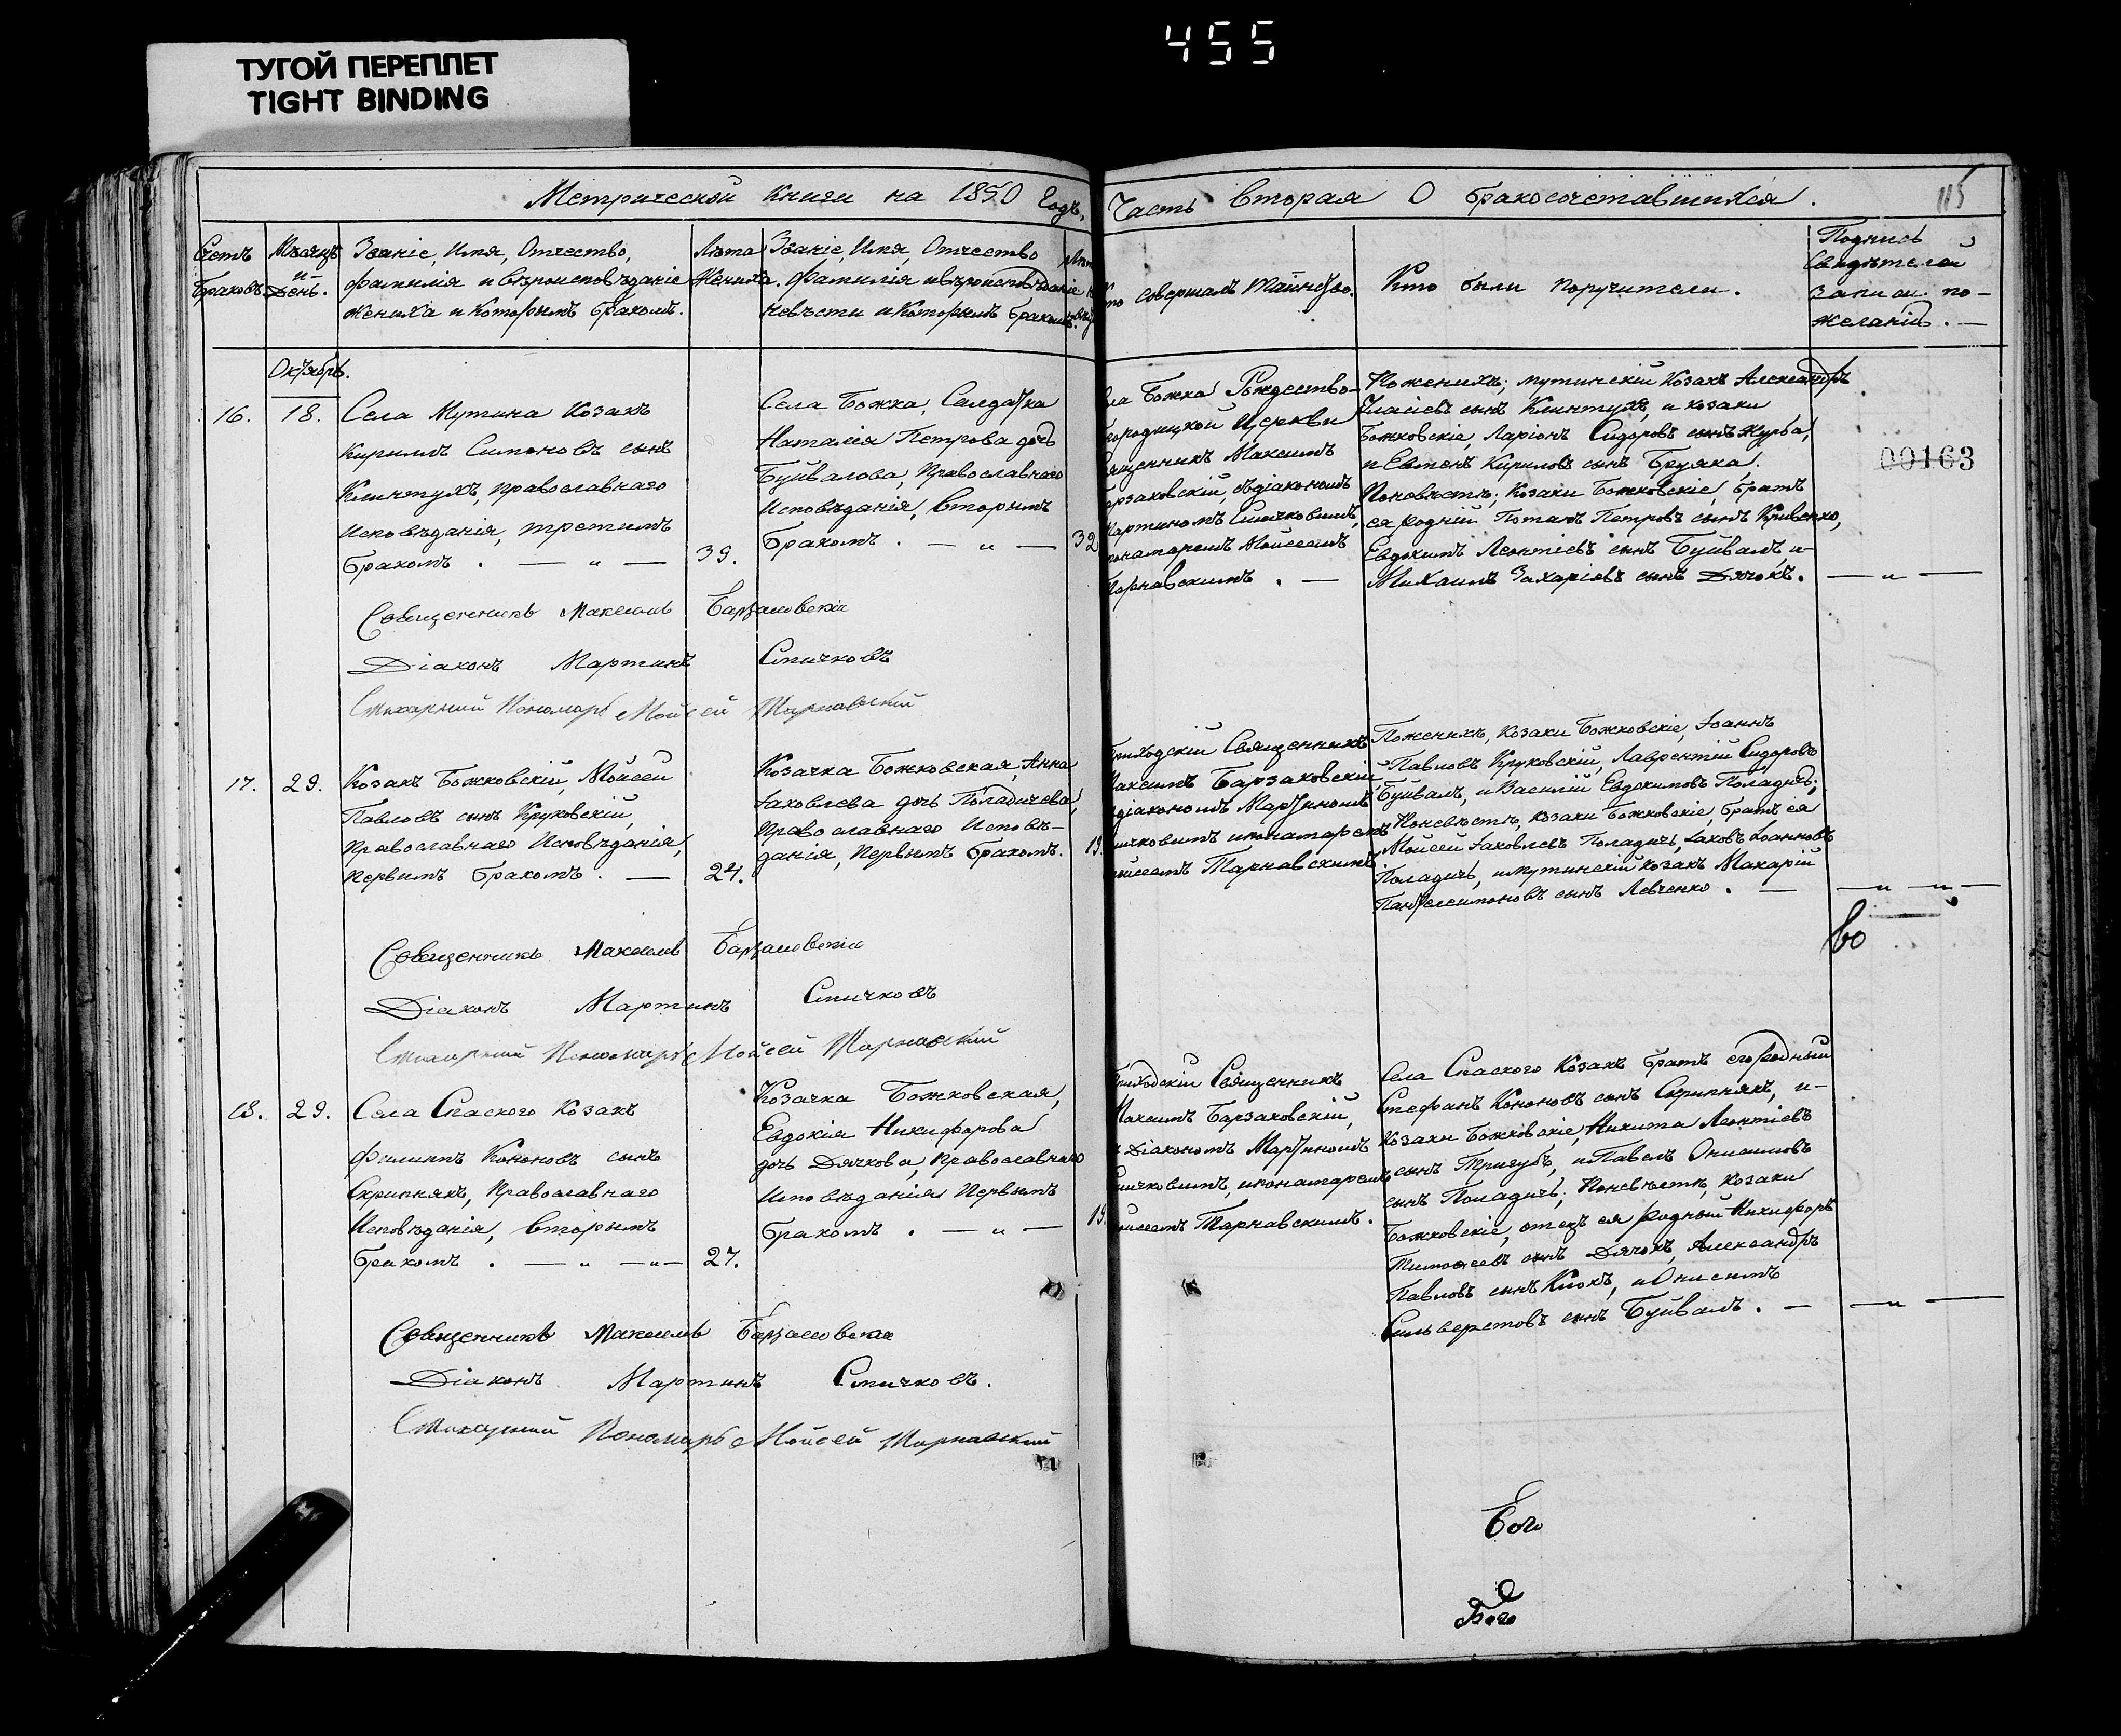 455
ТУГОЙ ПЕРЕПЛЕТ
TIGHT BINDING
Метрической книги на 1850 годъ,
Часть вторая О бракосочетавшихся.
115
Счетъ
Браковъ.
Мѣсяцъ
и
День.
Званіе, Имя, Отчество,
фамилія и вѣроисповѣданіе
жениха и которымъ бракомъ.
Лѣта
Жениха.
Званіе, Имя, Отчество
фамилія и вѣроисповѣданіе
невѣсты и которымъ бракомъ.
совершалъ таинство.
Кто были поручители.
Подпись
свидѣтелей
записи по
желанію. —
Октябрь.
16.
18.
Села Мутина козакъ
Кирилъ Симоновъ сынъ
Клинтухъ, православнаго
исповѣданія, третимъ
бракомъ . — „ —
39.
Села Божка, Салдатка
Наталія Петрова дочь
Буйвалова, православнаго
исповѣданія, вторымъ
бракомъ . — „ —
32
Божка Рождество-
городицкой Церкви
Максимъ
съ діакономъ
Спичковимъ,
Мойсеемъ
. —
По женихѣ; мутинскій козакъ Александръ
сынъ Клинтухъ, и козаки
Божковскіе, Ларіонъ Сидоровъ сынъ Журба,
и Евменъ Кириловъ сынъ Бруяка.
По невѣстѣ; козаки Божковскіе, братъ
ея родній Потапъ Петровъ сынъ Кривенко,
Евдокимъ Леонтіевъ сынъ Буйвалъ, и
Михаилъ Захаріевъ сынъ Дячокъ.
— „ —
00163
Священникъ Максимъ Барзаковскій
Діаконъ Мартинъ Спичковъ
Стихарный Пономарь Мойсей Тарнавскій
17.
29.
Козакъ Божковскій, Мойсей
Павловъ сынъ Круковскій,
православнаго исповѣданія,
первымъ бракомъ. —
24.
Козачка Божковская, Анна
Іаковлева дочь Поладичева,
православнаго исповѣ-
данія, первымъ бракомъ.
19.
Священникъ
Барзаковскій
Мартиномъ
Тарнавскимъ
По женихѣ, козаки Божковскіе, Іоаннъ
Павловъ Круковскій, Лаврентій Сидоровъ
Буйвалъ, и Василій Евдокимовъ Поладичъ;
По невѣстѣ, козаки Божковскіе, братъ ея
Мойсей Іаковлевъ Поладичъ, Іаковъ Іоанновъ
Поладичъ, и мутинскій козакъ Макарій
Пантелеимоновъ сынъ Левченко. —
— „ — „ —
Священникъ Максимъ Барзаковскій
Діаконъ Мартинъ Спичковъ
Стихарный Пономарь Мойсей Тарнавскій
18.
29.
Села Спаского козакъ
Филиппъ Кононовъ сынъ
Скрипнякъ, православнаго
исповѣданія, вторымъ
бракомъ . — „ — „ —
27.
Козачка Божковская,
Евдокія Никифорова
дочь Дячкова, православнаго
исповѣданія первымъ
бракомъ . — „ —
19.
Священникъ
Барзаковскій,
Діакономъ Мартиномъ
Тарнавскимъ.
Села Спаского козакъ братъ его родный
Стефанъ Кононовъ сынъ Скрипнякъ, и
козаки Божковскіе, Никита Леонтіевъ
сынъ Тригубъ, и Павелъ Онисимовъ
сынъ Поладичъ; По невѣстѣ, козаки
Божковскіе, отецъ ея родный Никифоръ
Тимофеевъ сынъ Дячокъ, Александръ
Павловъ сынъ Кюхъ, и Онисимъ
Сильверстовъ сынъ Буйвалъ. —
— „ —
Священникъ Максимъ Барзаковскій
Діаконъ Мартинъ Спичковъ.
Стихарный Пономарь Мойсей Тарнавскій